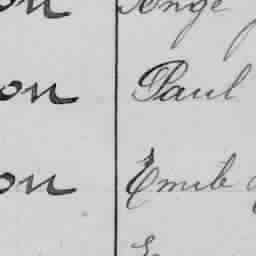 on Ange
on Paul
on Emile